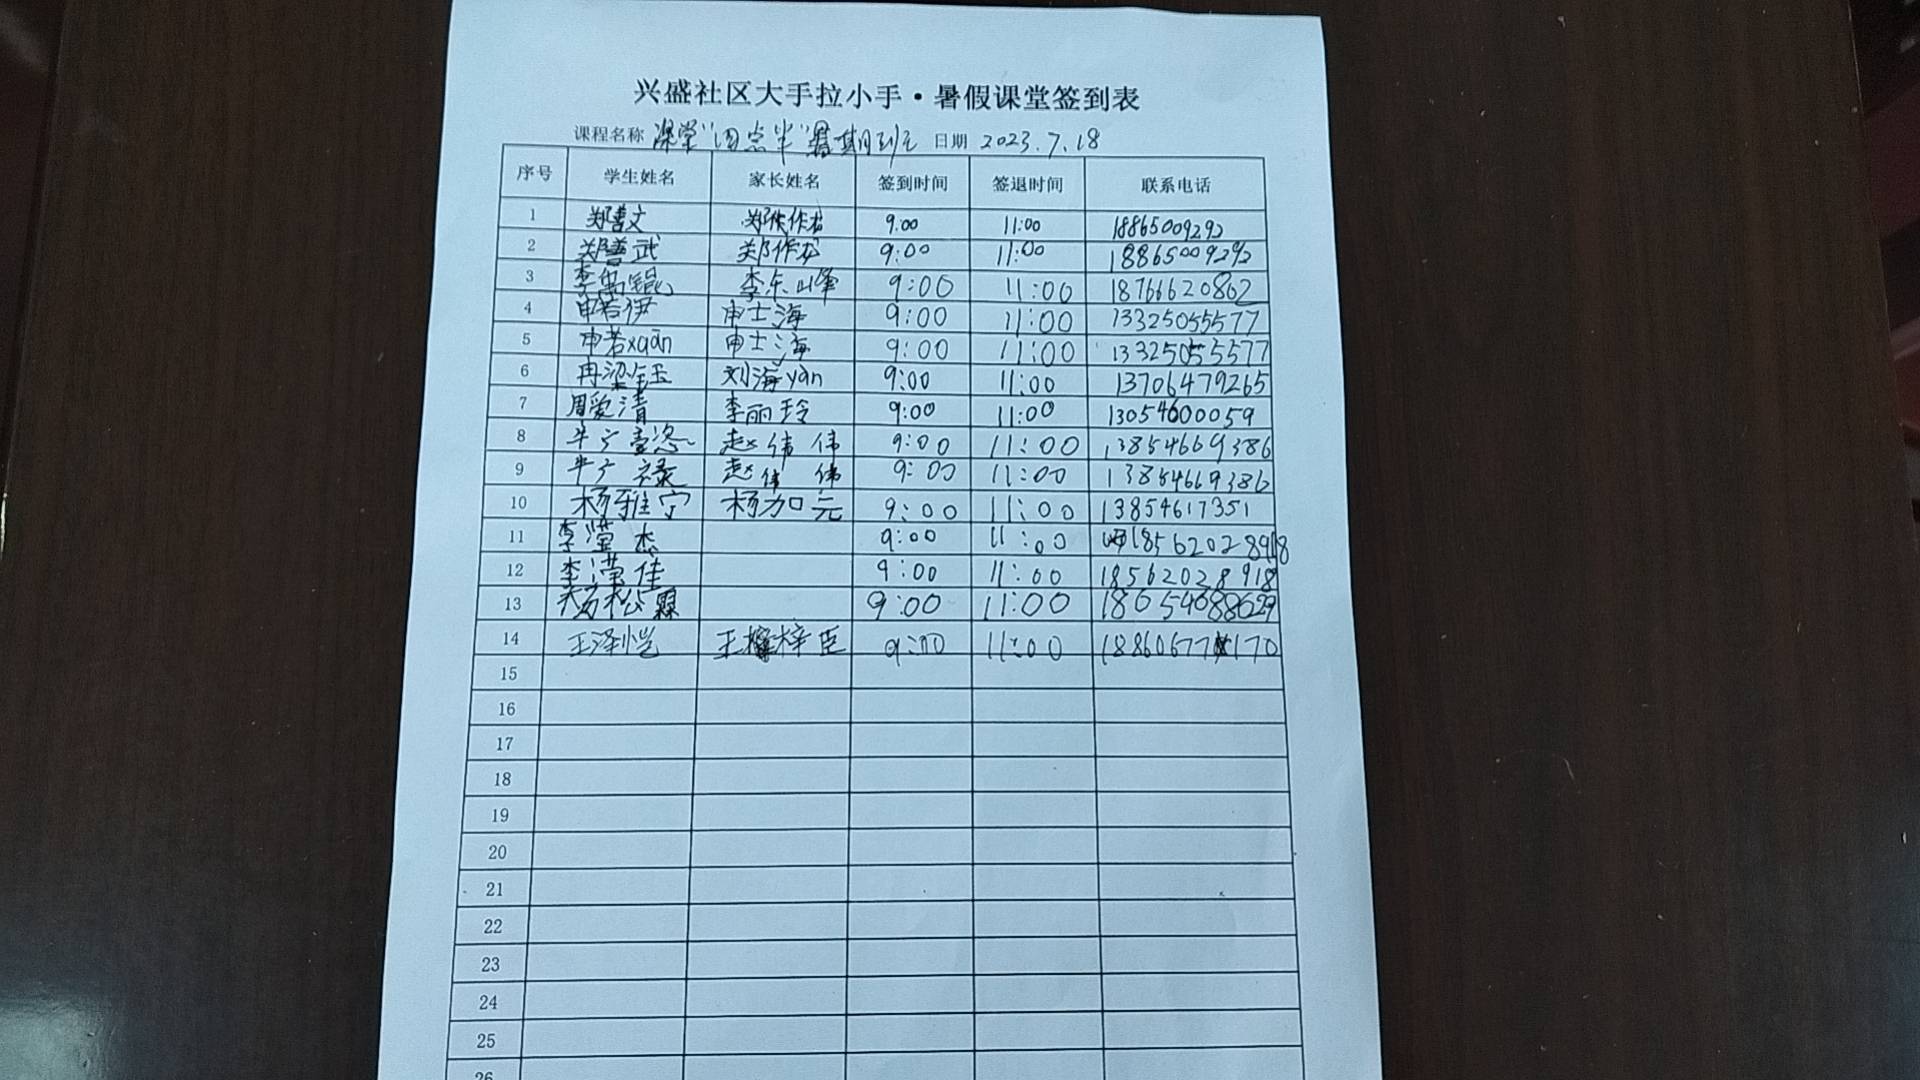 兴盛社区大手拉小手·暑假课堂签到表
课程名称 课堂"四点半"暑期班 日期 2023.7.18
序号 学生姓名 家长姓名 签到时间 签退时间 联系电话
1 郑善文 郑作龙 9:00 11:00 18865009292
2 郑善武 郑作龙 9:00 11:00 18865009292
3 李禹锟 李东峰 9:00 11:00 18766620862
4 申若伊 申士海 9:00 11:00 13325055577
5 申若xuān 申士海 9:00 11:00 13325055577
6 冉梁钰 刘海yàn 9:00 11:00 13706479265
7 周爱清 李丽玲 9:00 11:00 13054600059
8 牛广 赵伟伟 9:00 11:00 13854669386
9 牛广禄 赵伟伟 9:00 11:00 13854669386
10 杨雅宁 杨加元 9:00 11:00 13854617351
11 李滢杰 9:00 11:00 18562028918
12 李滢佳 9:00 11:00 18562028918
13 松霖 9:00 11:00 18654688629
14 王泽恺 王梓臣 9:00 11:00 18860677170
15
16
17
18
19
20
21
22
23
24
25
26